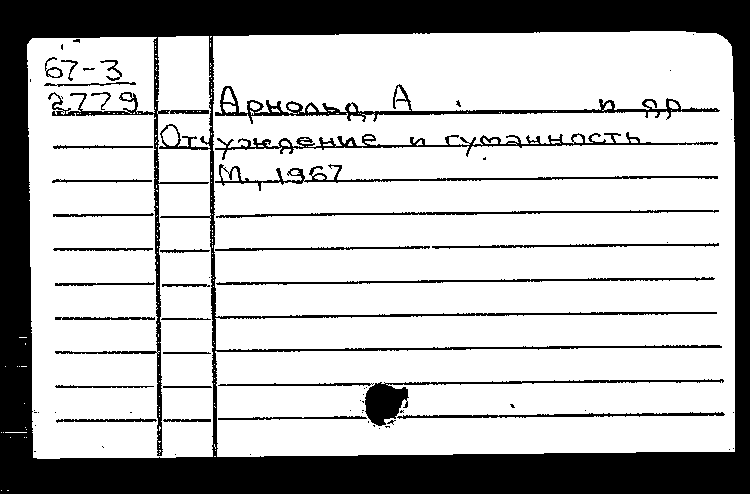 67-3
2779
Арнольд, А. и др.
Отчуждение и гуманность.
М., 1967